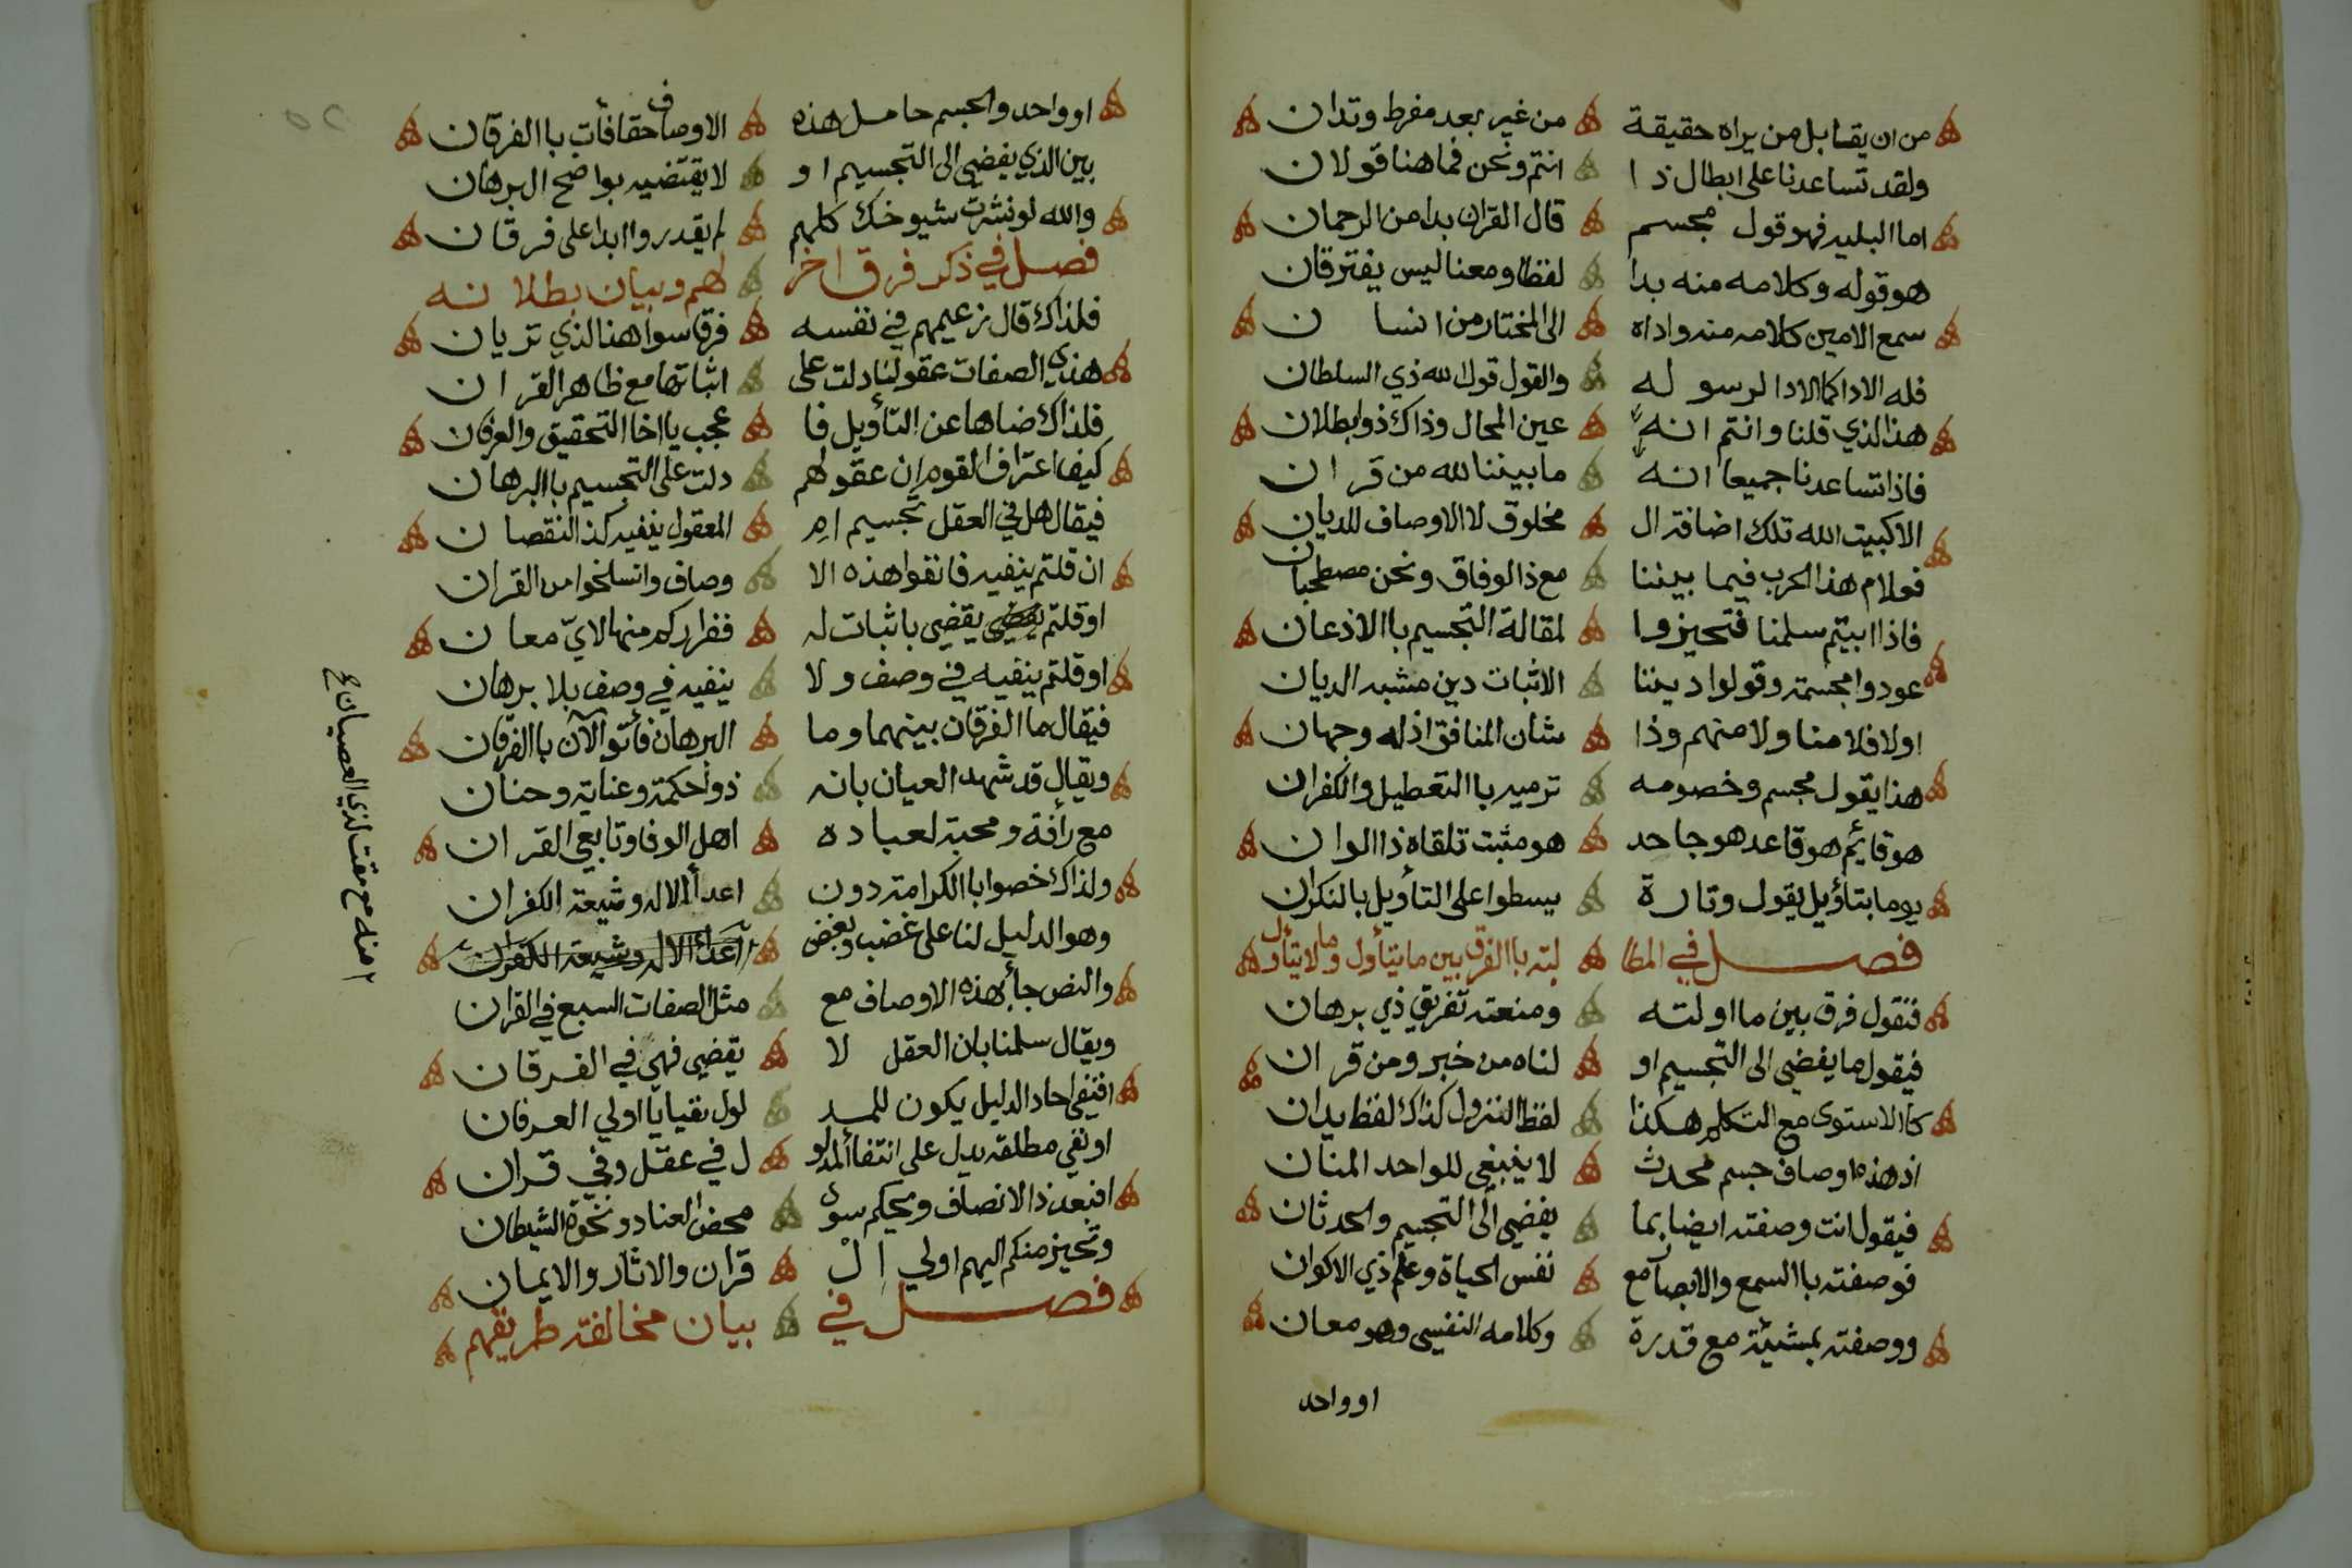 من ان يقابل من يراه حقيقة من غير بعد مفرط وتدان
ولقد تساعدنا على ابطال ذا انتم ونحن فما هنا قولان
اما البليه فهو قول مجسم قال القران بدا من الرحمان
هو قوله وكلامه منه بدا لفظا ومعنا ليس يفترقان
سمع الامين كلامه منه واداه الى المختار من انسان
فله الادا كما الادا لرسوله والقول قول الله ذي السلطان
هذا الذي قلنا وانتم انه عين المحال وذاك ذو بطلان
فاذا تساعدنا جميعا انه ما بيننا لله من قران
الا كبيت الله تلك اضافة ال مخلوق لا الاوصاف للديان
فولام هذا الحرب فيما بيننا مع ذا الوفاق ونحن مصطحبان
فاذا ابيتم سلمنا فتحيزوا لمقالة التجسيم باالاذعان
عودوا مجسمة وقولوا ديننا الاثبات دين مشبه الديان
اولا فلا منا ولا منهم وذا شان المنافق اذ له وجهان
هذا يقول مجسم وخصومه ترميه باالتعطيل والكفران
هو قايم هو قاعد هو جاحد هو مثبت تلقاه ذا الوان
يوما بتأويل يقول وتارة يسطوا على التأويل بالنكران
فصل في المطا لبته باالفرق بين ما يتأول وما لا يتأول
فنقول فرق بين ما اولته ومنعته تفريق ذي برهان
فيقول ما يفضي الى التجسيم او لناه من خبر ومن قران
كاالاستوى مع التكلم هكذا لفظ النزول كذاك لفظ يدان
اذ هذه اوصاف جسم محدث لا ينبغي للواحد المنان
فيقول انت وصفته ايضا بما يفضي الى التجسيم والحدثان
فوصفته باالسمع والابصار مع نفس الحياة وعلم ذي الاكوان
ووصفته بمشيئة مع قدرة وكلامه النفسي وهو معان
او واحد
او واحد والجسم حامل هذه الاوصاف حقا فأت باالفرقان
بين الذي يفضي الى التجسيم او لا يقتضيه بواضح البرهان
والله لو نشرت شيوخك كلهم لم يقدروا ابدا على فرقان
فصل في ذكر فرق اخر لهم وبيان بطلانه
فلذاك قال زعيمهم في نفسه فرقا سوا هذا الذي تريان
هذي الصفات عقولنا دلت على اثباتها مع ظاهر القران
فلذاك ضناها عن التأويل فا عجب يا اخا التحقيق والعرفان
كيف اعتراف القوم ان عقولهم دلت على التجسيم باالبرهان
فيقال هل في العقل تجسيم ام المعقول ينفيه كذا النقصان
ان قلتم ينفيه فانفوا هذه الا وصاف وانسلخوا من القران
او قلتم يقضي باثبات له ففراركم منها لايّ معان
او قلتم ينفيه في وصف ولا ينفيه في وصف بلا برهان
فيقال ما الفرقان بينهما وما البرهان فأتوا الآن باالفرقان
ويقال قد شهد العيان بانه ذو حكمة وعناية وحنان
مع رأفة ومحبة لعباده اهل الوفا وتابعي القران
ولذاك خصوا باالكرامة دون اعداء الاله وشيعة الكفران
وهو الدليل لنا على غضب وبغض اعداء الاله وشيعة الكفران
منه مع مقت لذي العصيان صح
والنص جأ بهذه الاوصاف مع مثل الصفات السبع في القران
ويقال سلمنا بان العقل لا يقضي فهي في الفرقان
افنفي احاد الدليل يكون للمد لول نفيا يا اولي العرفان
او نفي مطلقه يدل على انتفاء المدلو ل في عقل وفي قران
افبعد ذا الانصاف ويحكم سوى محض العناد ونخوة الشيطان
وتحيز منكم اليهم اولي ال قران والاثار والايمان
فصل في بيان مخالفة طريقهم